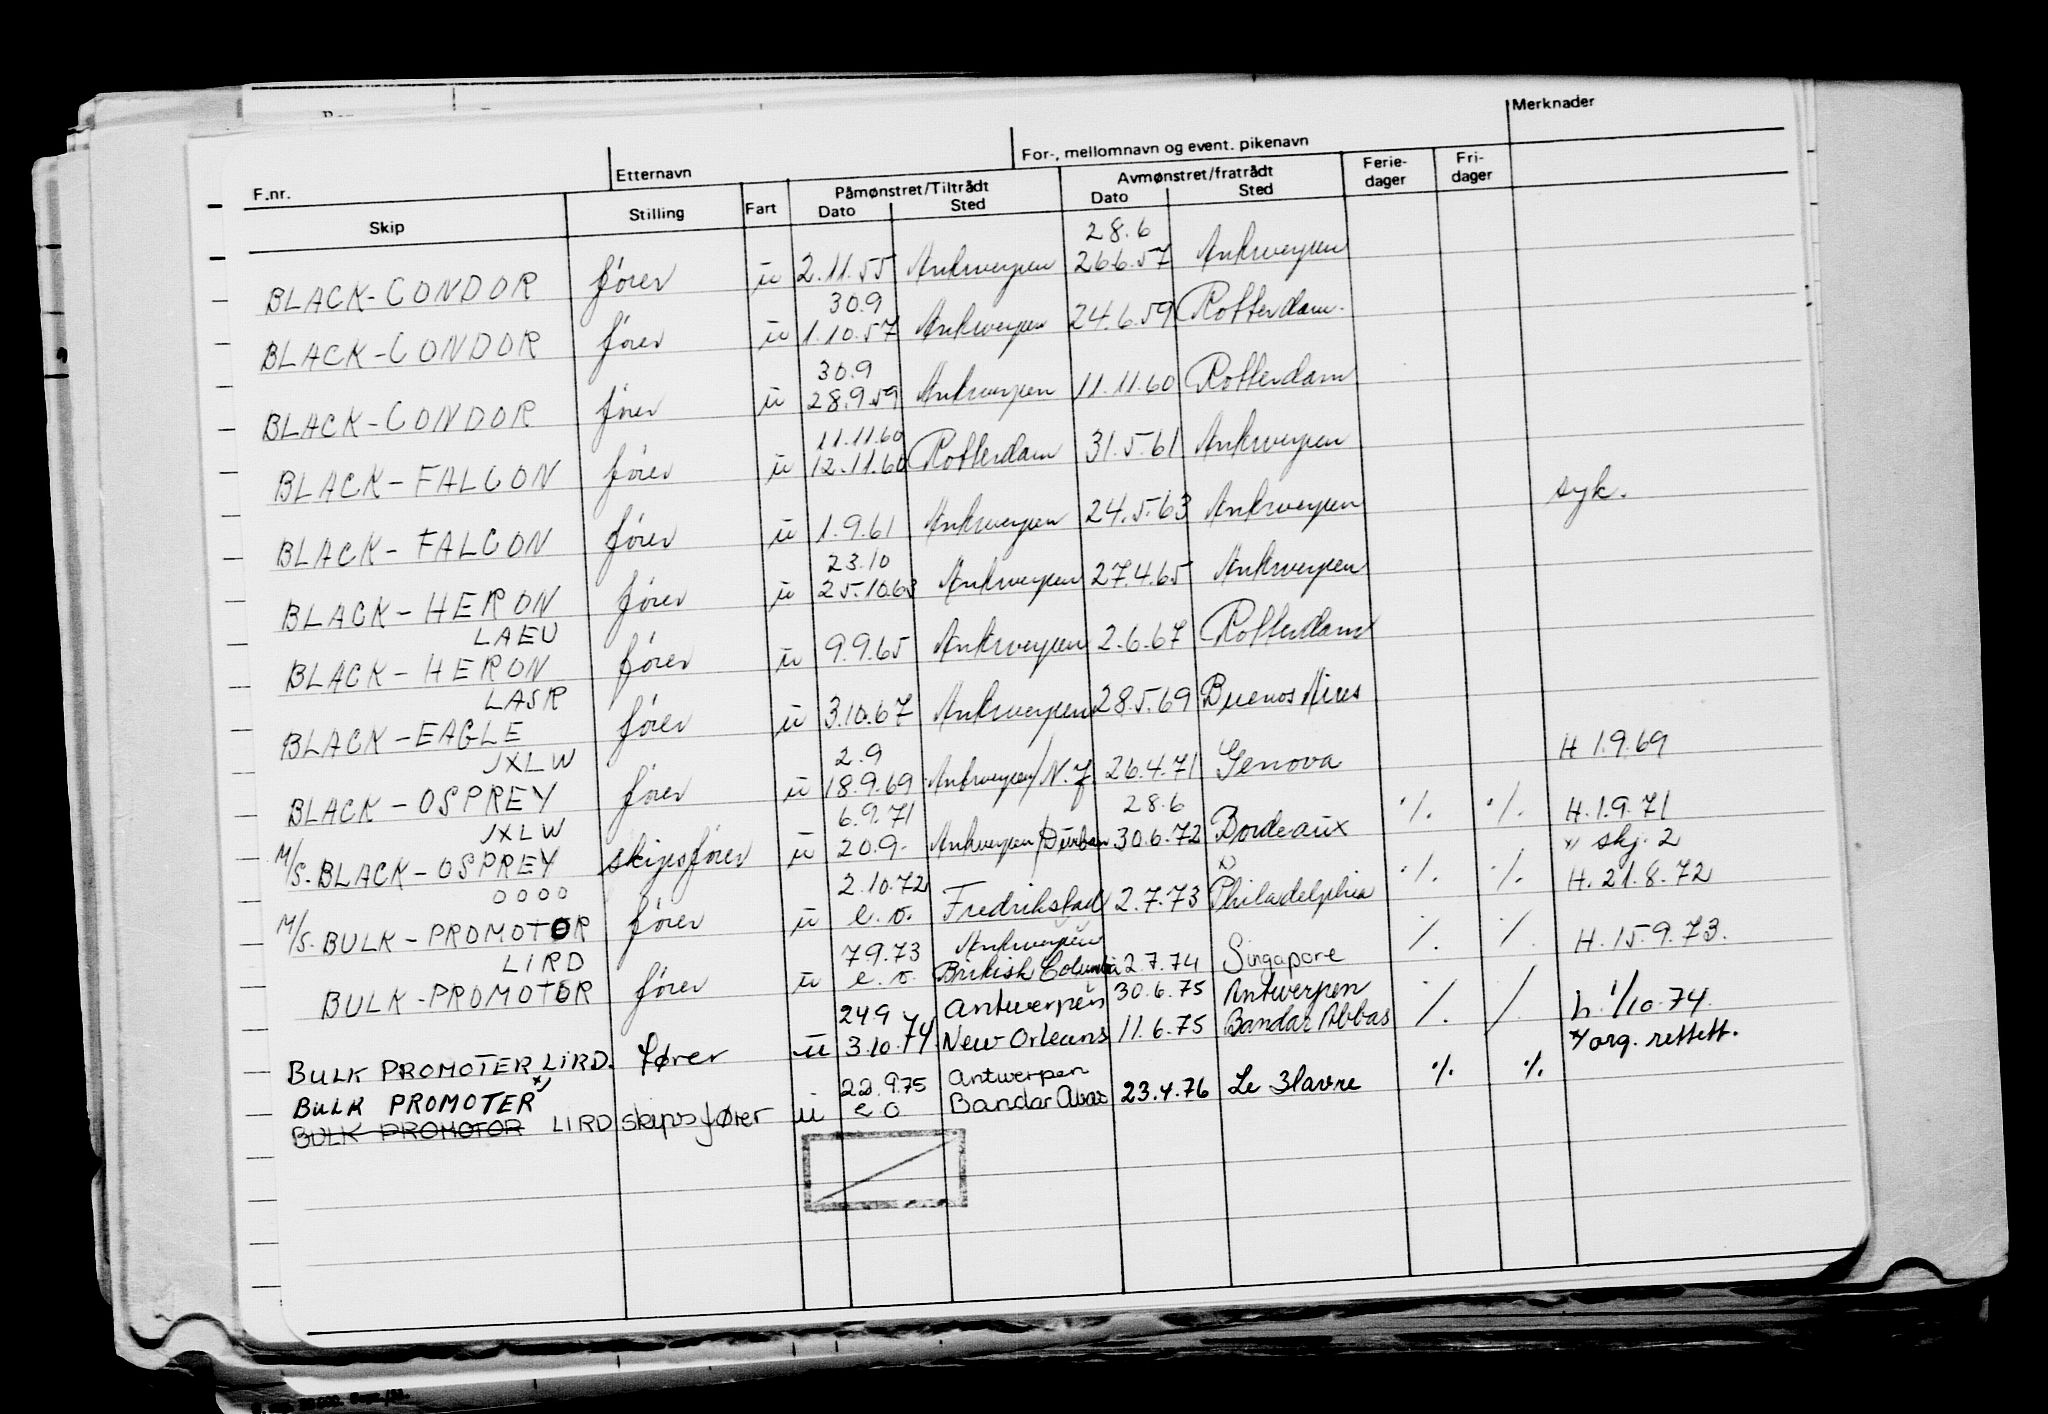 Merknader
F.nr. Etternavn For-, mellomnavn og event. pikenavn
Påmønstret/Tiltrådt Avmønstret/fratrådt Ferie-dager Fri-dager
Skip Stilling Fart Dato Sted Dato Sted
28.6
BLACK-CONDOR fører u 2.11.55 Antwerpen 26.6.57 Antwerpen
30.9
BLACK-CONDOR fører u 1.10.57 Antwerpen 24.6.59 Rotterdam.
30.9
BLACK-CONDOR fører u 28.9.59 Antwerpen 11.11.60 Rotterdam
11.11.60
BLACK-FALCON fører u 12.11.60 Rotterdam 31.5.61 Antwerpen
BLACK-FALCON fører u 1.9.61 Antwerpen 24.5.63 Antwerpen syk.
23.10
BLACK-HERON fører u 25.10.63 Antwerpen 27.4.65 Antwerpen
LAEU
BLACK-HERON fører u 9.9.65 Antwerpen 2.6.67 Rotterdam
LASR
BLACK-EAGLE fører u 3.10.67 Antwerpen 28.5.69 Buenos Aires
JXLW 2.9
BLACK-OSPREY fører u 18.9.69 Antwerpen/N.J. 26.4.71 Genova H 1.9.69
JXLW 6.9.71 28.6
M/S. BLACK-OSPREY skipsfører u 20.9. Antwerpen/Durban 30.6.72 Bordeaux ./. ./. H. 1.9.71
OOOO 2.10.72 x) x) skj. 2
M/S. BULK-PROMOTOR fører u e.o. Fredrikstad 2.7.73 Philadelphia ./. ./. H. 21.8.72
LIRD 7.9.73 Antwerpen
BULK-PROMOTOR fører u e.o. British Columbia 2.7.74 Singapore ./. ./. H. 15.9.73.
24.9 Antwerpen 30.6.75 Antwerpen
BULK PROMOTER LIRD. fører u 3.10.74 New Orleans 11.6.75 Bandar Abbas ./. ./. h. 1/10.74.
BULK PROMOTER x) 22.9.75 Antwerpen x) org. rettett.
BULK PROMOTOR LIRD skipsfører u e o Bandar Abas 23.4.76 Le Havre ./. ./.